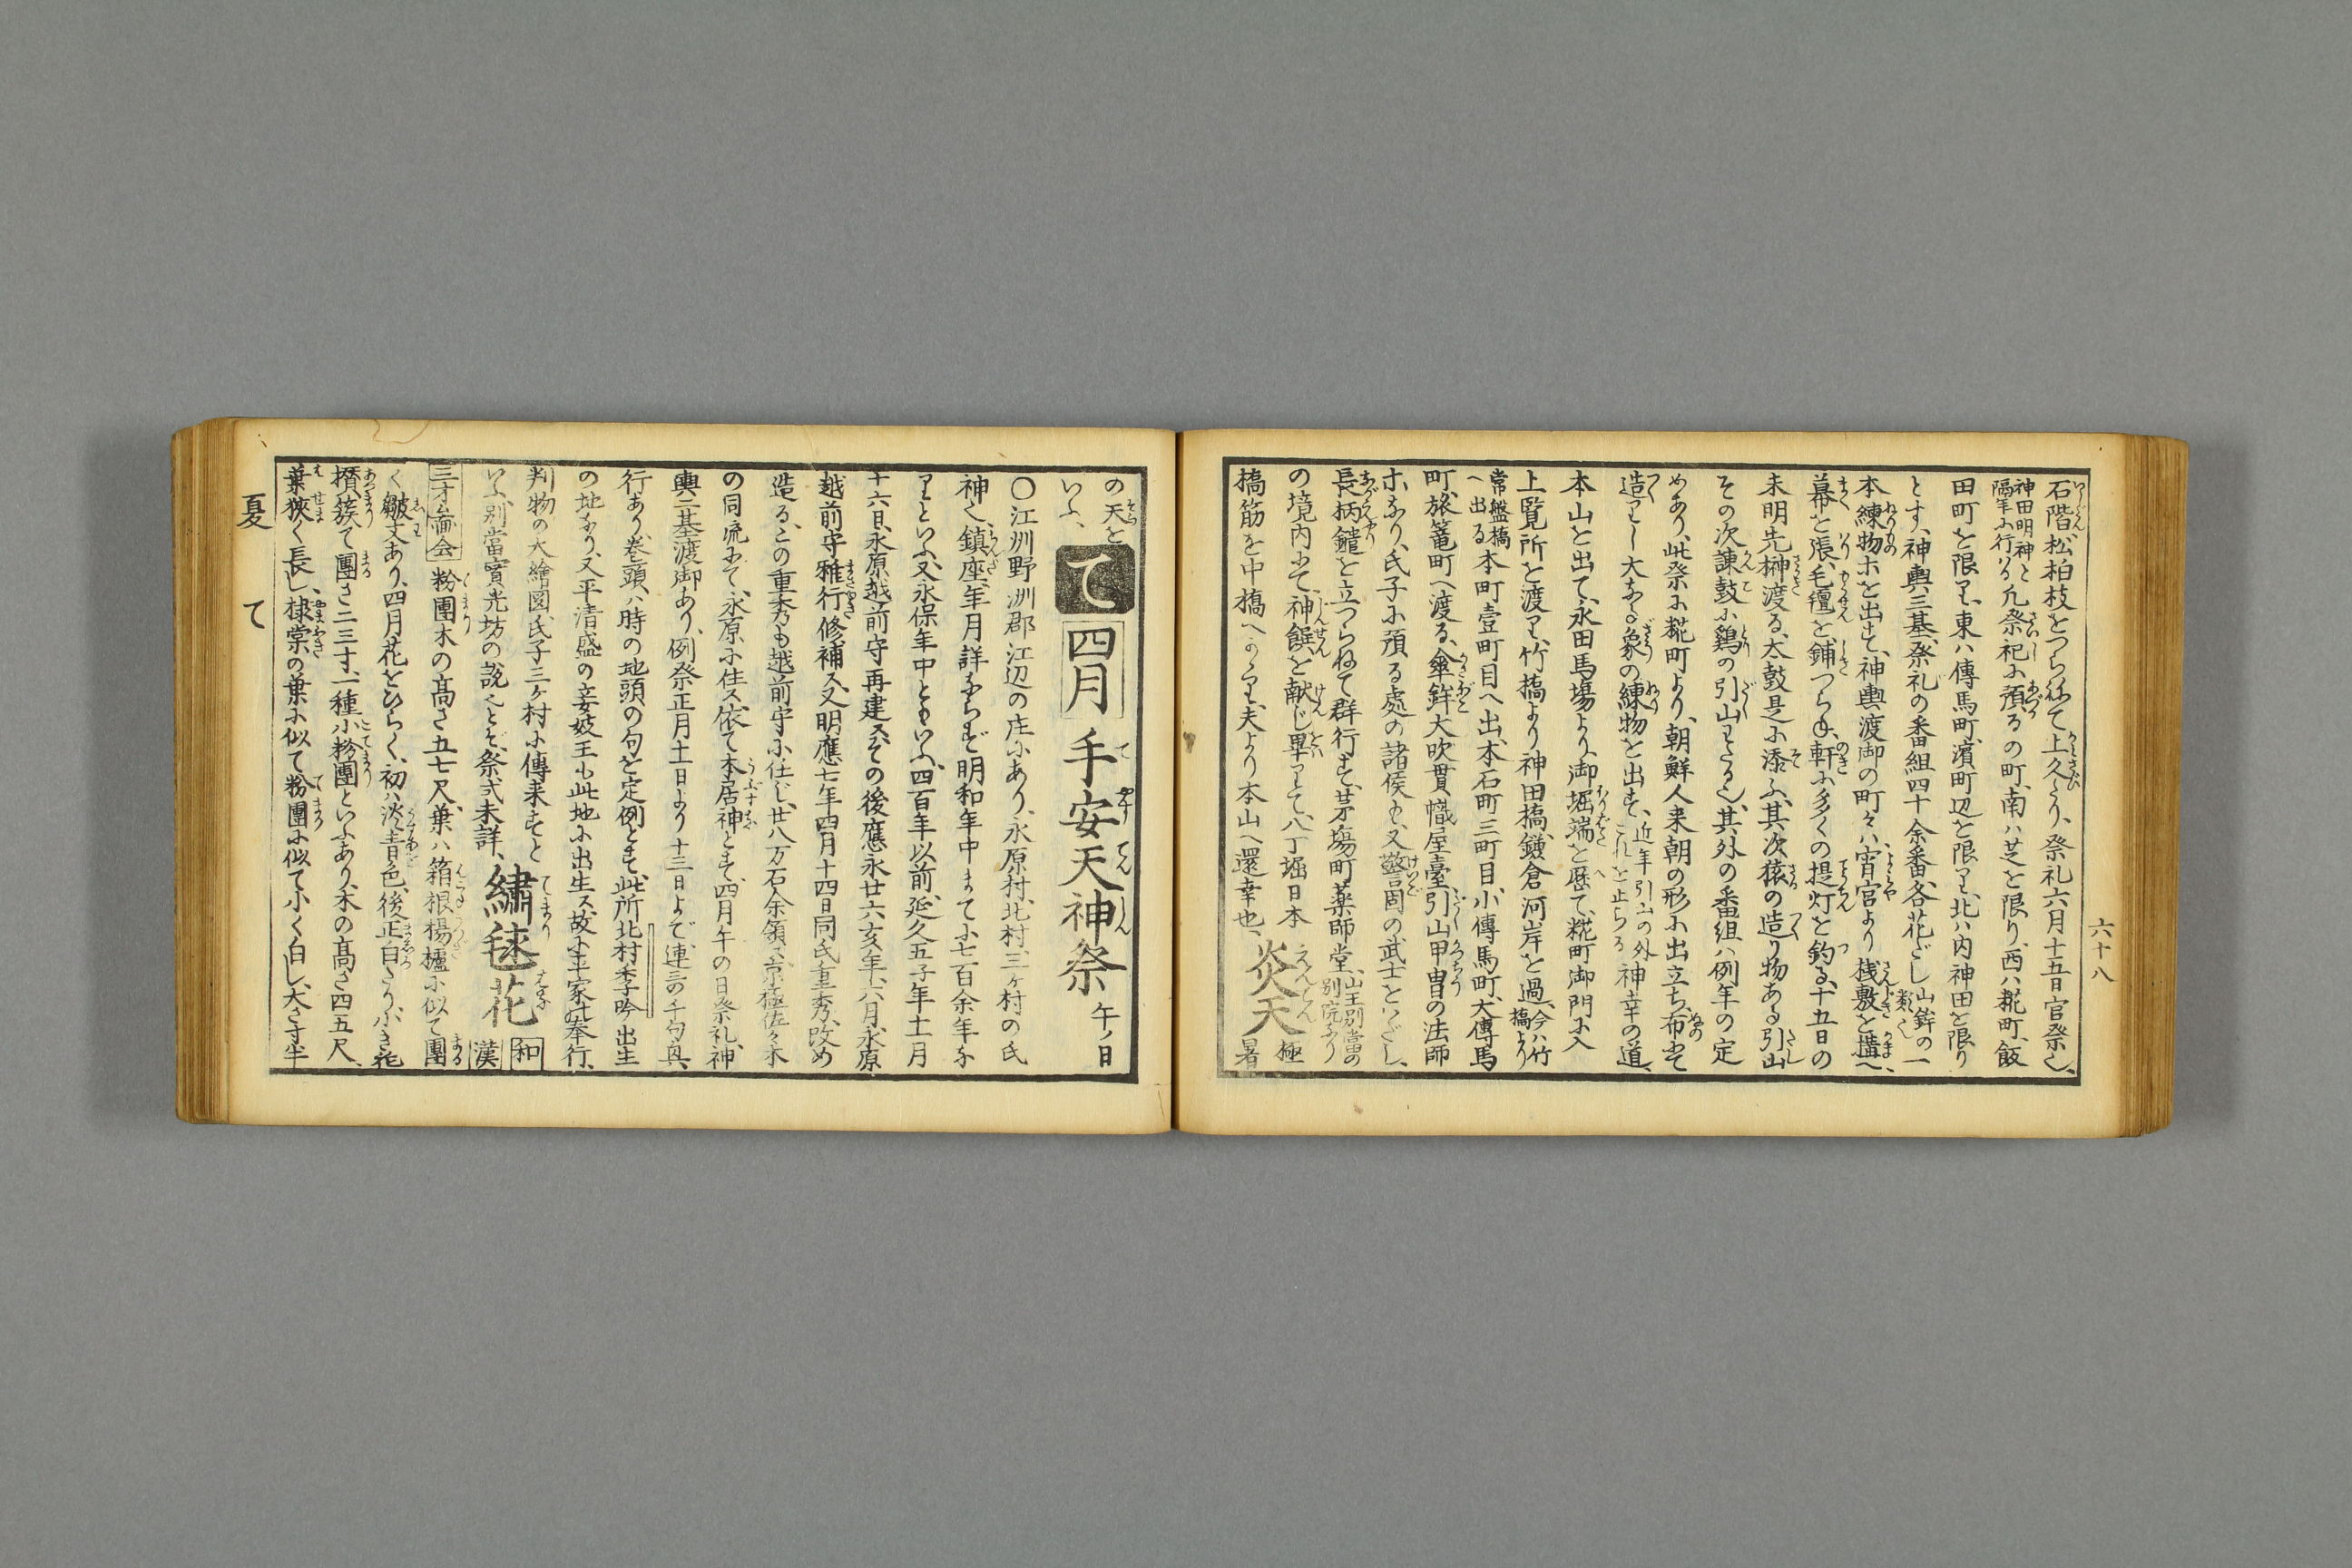 六十八
石階、松柏枝をつらねて上久たり、祭礼六月十五日官祭也、
神田明神と隔年に行る凡祭祀に預るの町、南ハ芝を限り、西ハ糀町、飯
田町を限り、東ハ傳馬町、濱町辺を限り、北ハ内神田を限り
とす、神輿三基、祭礼の番組四十余番、各花だし山鉾の類也一
本、練物ホを出す、神輿渡御の町々ハ、宵宮より桟敷を搆へ、
幕を張、毛氈を鋪つらね、軒に多くの提灯を釣る、十五日の
未明先榊渡る、太鼓是に添ふ、其次猿の造り物ある引山
その次諫鼓に鶏の引山わたる也、其外の番組ハ例年の定
めあり、此祭に糀町より、朝鮮人来朝の形に出立ち、布にて
造りし大なる象の練物を出す、近年引山の外これを止らる神幸の道、
本山を出て、永田馬場より、御堀端を歴て、糀町御門に入
上覧所を渡り、竹橋より神田橋、鎌倉河岸を過、今ハ竹橋より
常盤橋へ出る本町壹町目へ出、本石町三町目、小傳馬町、大傳馬
町、旅篭町へ渡る、傘鉾大吹貫幟屋臺引山甲冑の法師
ホなり、氏子に預る處の諸侯も、又警固の武士をいだし、
長柄鑓を立つらねて群行す、茅場町薬師堂、山王別當の別院なり
の境内にて、神饌を献じ畢りて、八丁堀日本
橋筋を中橋へかゝり、夫より本山へ還幸也、炎天 極暑
の天をいふ、
て 四月 手安天神祭 午ノ日
〇江洲野洲郡江辺の庄にあり、永原村、北村、三ヶ村の氏
神也、鎮座、年月詳ならず、明和年中まてに七百余年に
りといふ、又永保年中ともいふ、四百年以前、延久五子年十一月
十六日、永原越前守再建、又その後應永廿六亥年、六月、永原
越前守雅行修補ス、又明應七年四月十四日同氏重秀、改め
造る、この重秀も越前守に任じ、廿八万石余領ス、京極佐々木
の同流にて、永原に住ス、依て本居神とす、四月午の日祭礼、神
輿二基渡御あり、例祭正月十一日より十三日まで、連三の千句奥
行あり、巻頭ハ時の地頭の句を定例とす、此所北村季吟出生
の地なり、又平清盛の妾妓王も此地に出生ス、故に平家より奉行、
判物の大繪図、氏子三ヶ村に傳来すと
いふ、別當寳光坊の説也とぞ、祭式未詳、繍毬花 和漢
三才圖会 粉團木の髙さ五七尺、葉ハ箱根楊櫨に似て團
く皺文あり、四月花をひらく、初ハ淡青色、後正白なり、小き花
攅簇て團さ二三寸、一種小粉團といふあり、木の髙さ四五尺、
葉狹く長し、棣棠の葉に似て粉團に似て小く白し、大さ寸半
夏 て